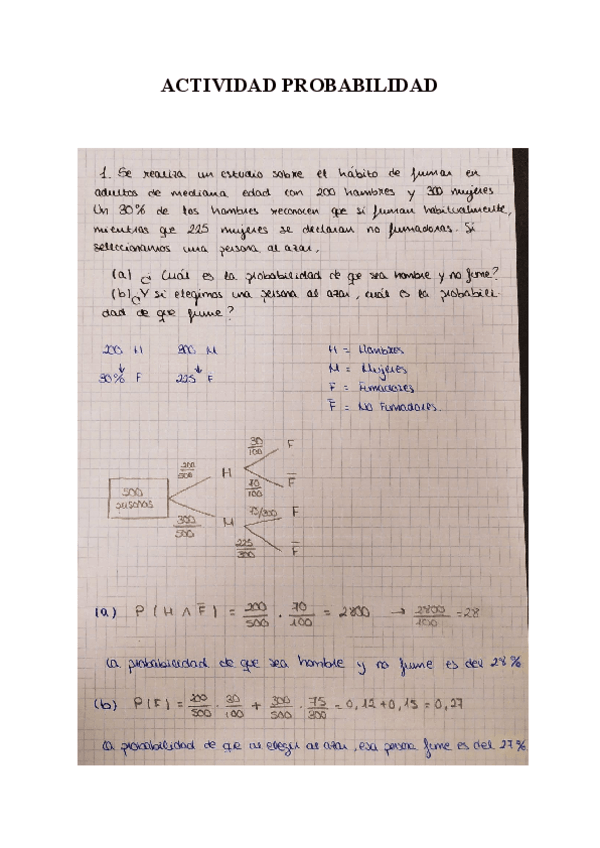 ACTIVIDAD PROBABILIDAD
1. Se realiza un estudio sobre el hábito de fumar en
adultos de mediana edad con 200 hombres y 300 mujeres
Un 30% de los hombres reconocen que si fuman habitualmente,
mientras que 225 mujeres se declaran no fumadoras. Si
seleccionamos una persona al azar,
(a) ¿ Cuál es la probabilidad de que sea hombre y no fume?
(b) ¿Y si elegimos una persona al azar, cuál es la probabili-
dad de que fume?
200 H 300 M H = Hombres
30% F 225 F M = Mujeres
F = Fumadores
F̅ = No Fumadores
30/100 F
200/500 H
70/100 F̅
500
personas
75/300 F
300/500 M
225/300 F̅
(a) P ( H ∧ F̅ ) = 200/500 · 70/100 = 2800 → 2800/100 = 28
la probabilidad de que sea hombre y no fume es del 28%
(b) P(F) = 200/500 · 30/100 + 300/500 · 75/300 = 0,12 + 0,15 = 0,27
la probabilidad de que al elegir al azar, esa persona fume es del 27%